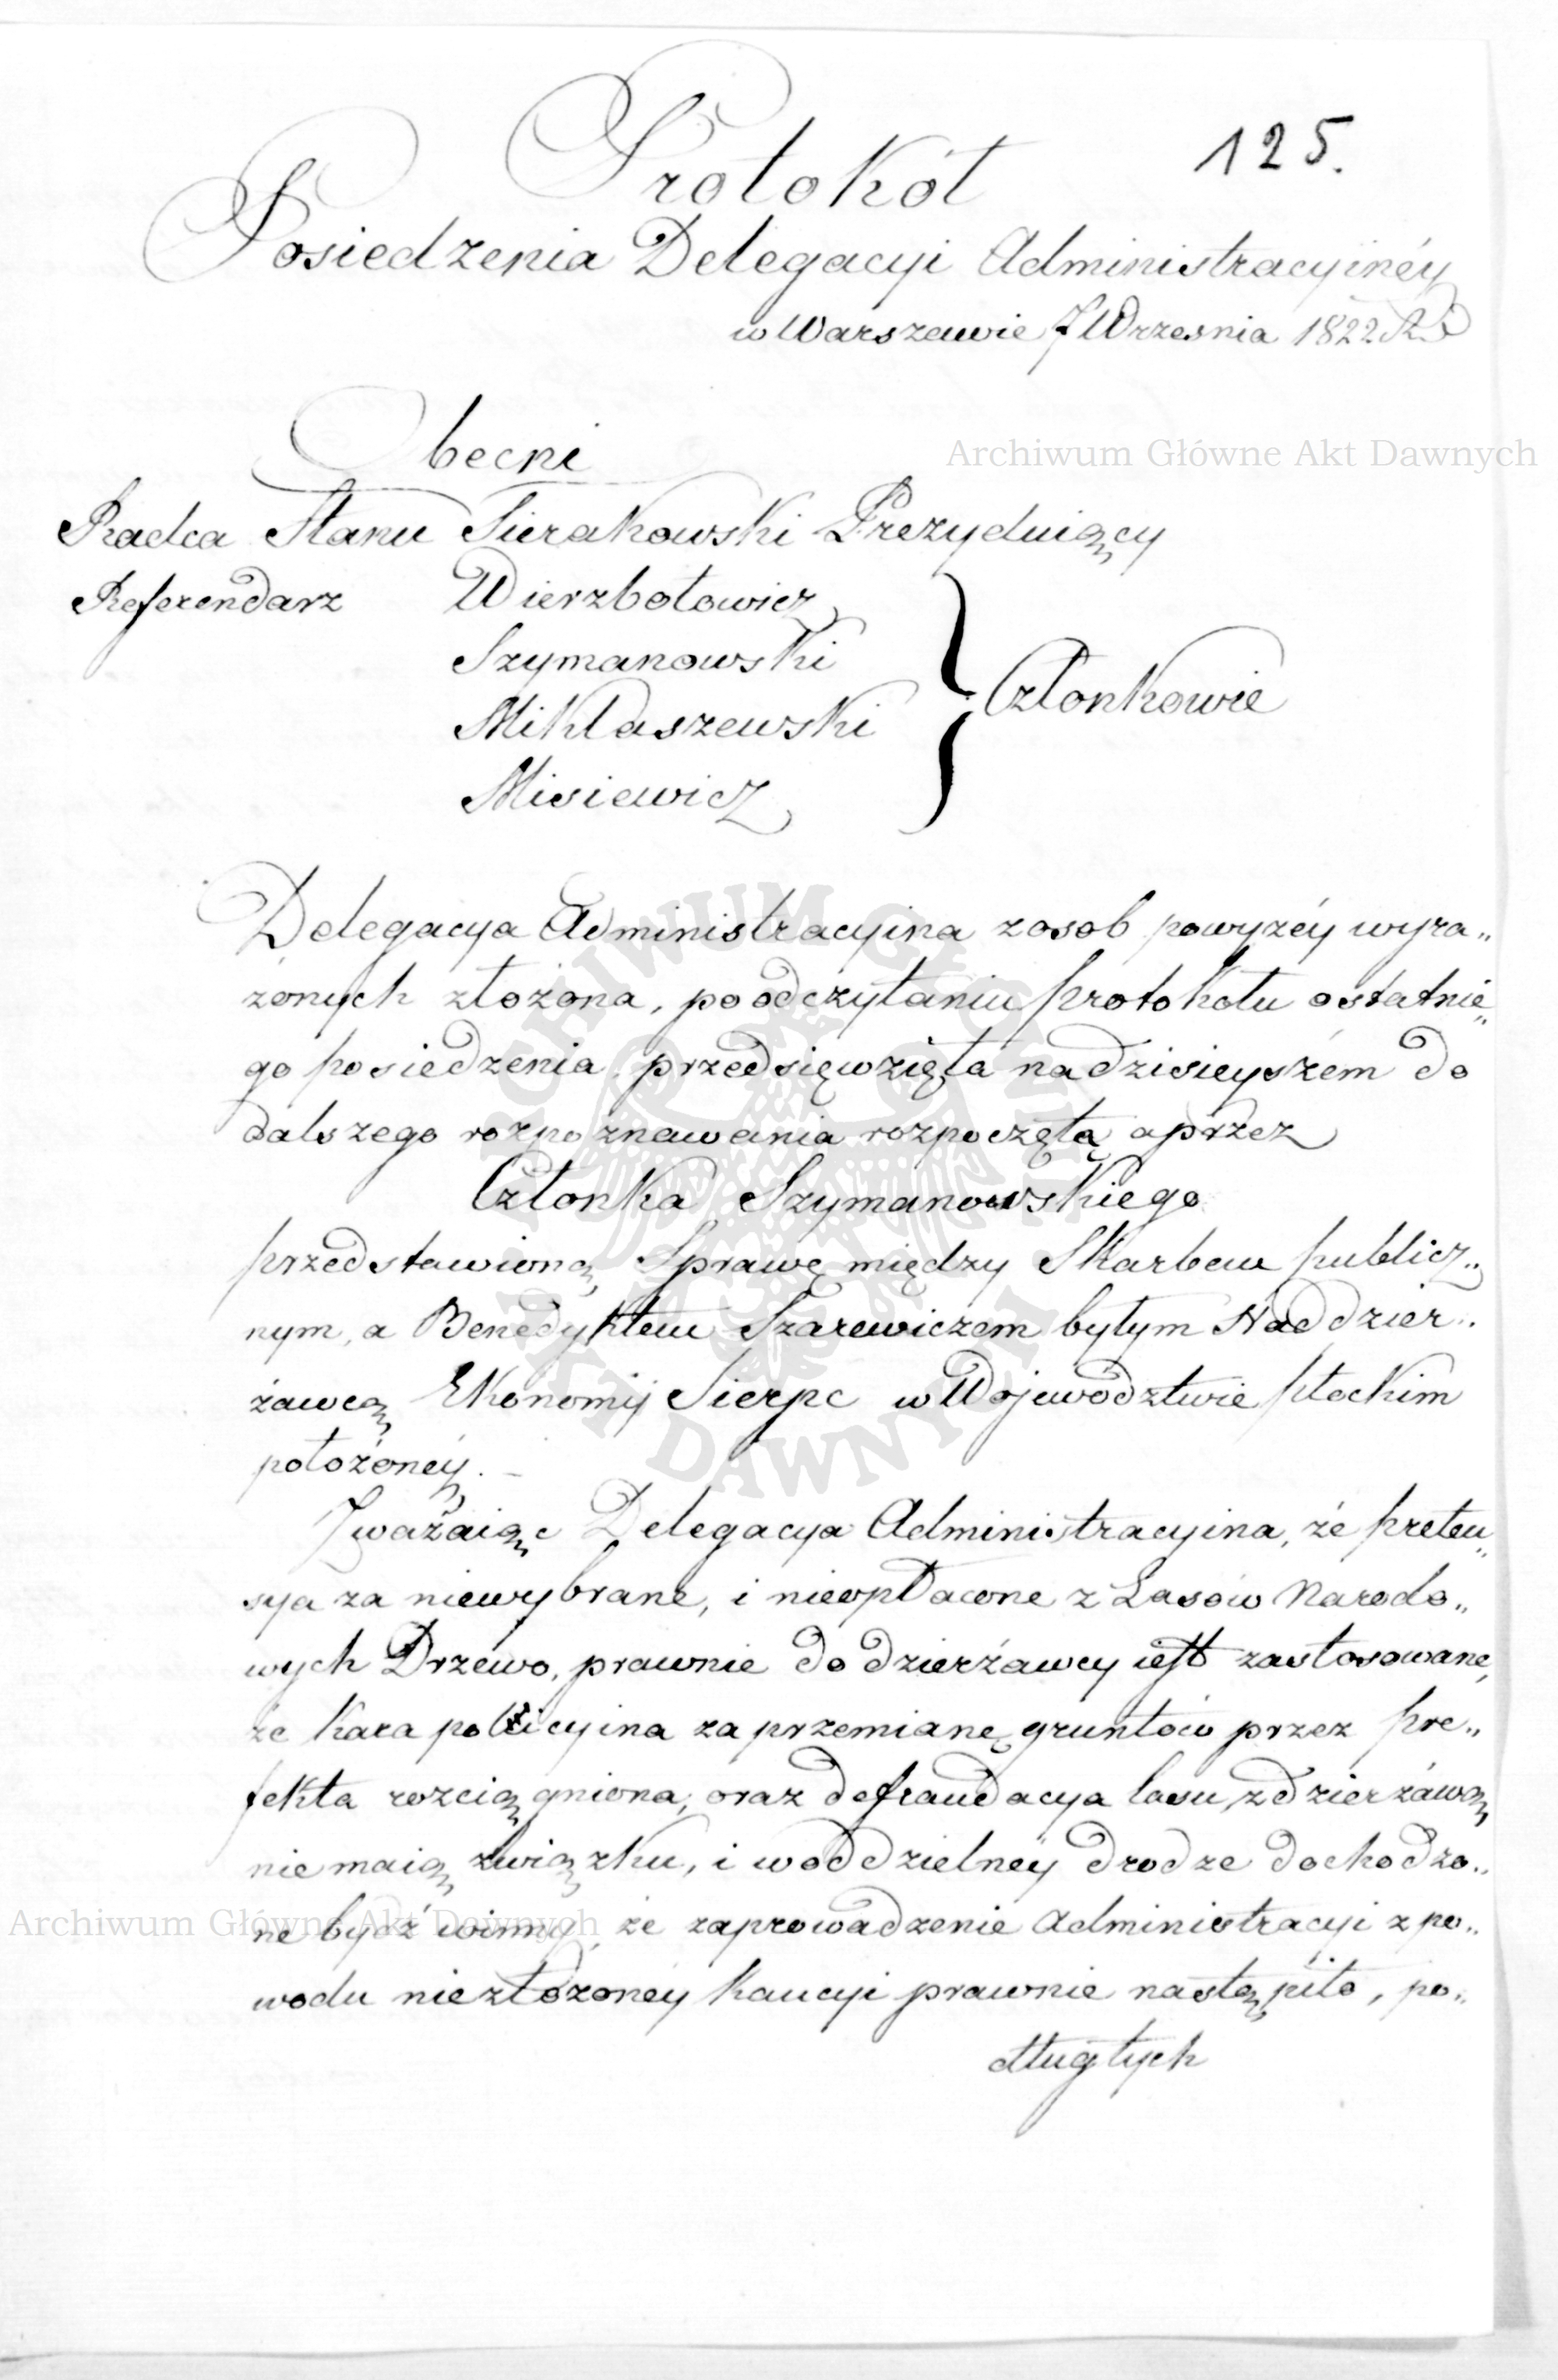 125.
Protokół
Posiedzenia Delegacyi Administracyinéy
w Warszawie 7 Września 1822 R.
Obecni
Archiwum Główne Akt Dawnych
Radca Stanu Sierakowski Prezyduiący
Referendarz Wierzbołowicz
Szymanowski
Członkowie
Mikłaszewski
Misiewicz
Delegacya Administracyina z osob powyżéy wyra„
żonych złożona, po odczytaniu protokołu ostatnie„
go posiedzenia, przedsięwzięła na dzisieyszém do
dalszego rozpoznawania rozpoczętą a przez
Członka Szymanowskiego
przedstawioną Sprawę między Skarbem publicz„
nym, a Benedyktem Szarewiczem byłym Naddzier„
żawcą Ekonomij Sierpc w Województwie płockim
położonéy. –
Zważaiąc Delegacya Administracyina, że preten„
sya za niewybrane, i nieopłacone z Lasów Narodo„
wych Drzewo, prawnie do dzierżawcy iest zastosowane,
że kara policyina za przemianę gruntów przez pre„
fekta rozciągniona, oraz defraudacya lasu, z dzierżawą
nie maią związku, i w oddzielney drodze dochodzo„
ne bydź winny, że zaprowadzenie Administracyi z po„
Archiwum Główne Akt Dawnych
wodu niezłożoney kaucyi prawnie nastąpiło, po„
dług tych
ARCHIWUM GŁÓWNE AKT DAWNYCH